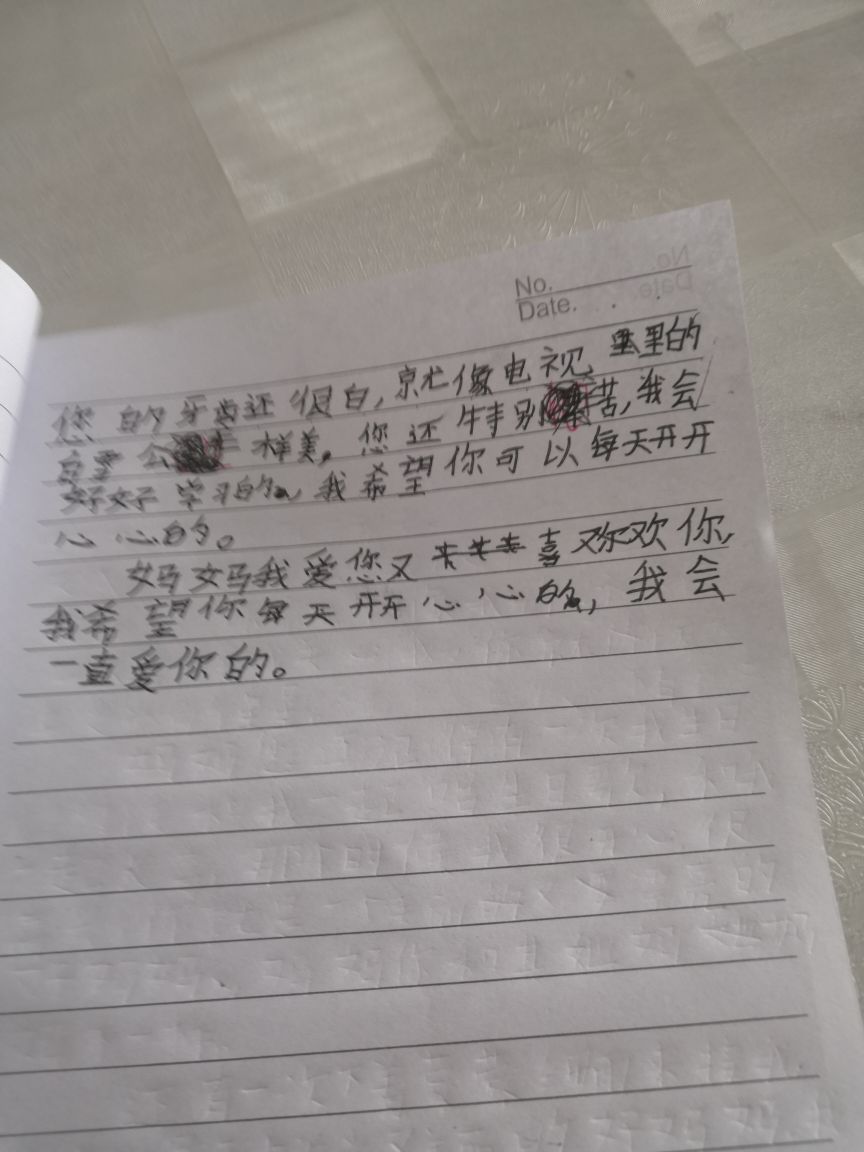 No.
Date.
您的牙齿还很白,就像电视里的
白雪公主一样美。您还特别辛苦,我会
好好学习的,我希望你可以每天开开
心心的。
妈妈我爱您又喜欢你,
我希望你每天开开心心的,我会
一直爱你的。